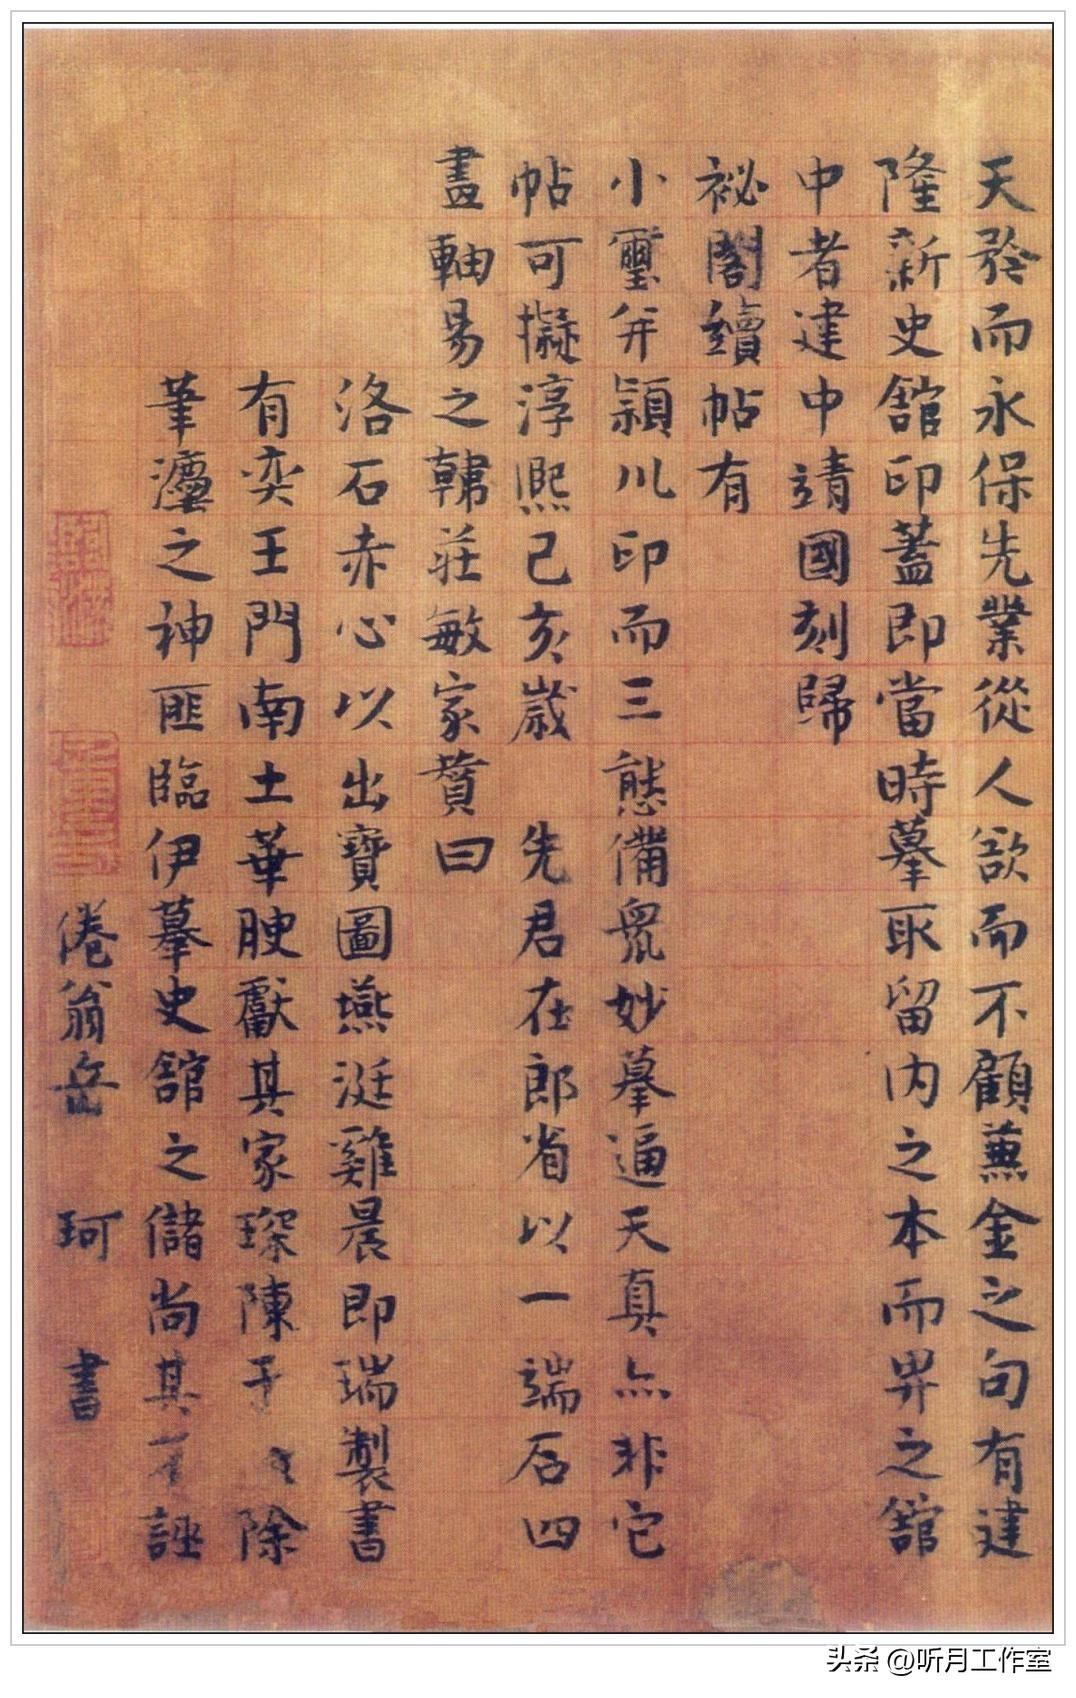 天矜而永保先業從人欲而不顧兼金之句有建
隆新史館印蓋即當時摹取留内之本而畀之館
中者建中靖國刻歸
祕閣續帖有
小璽并潁川印而三態備衆妙摹逼天真亦非它
帖可擬淳熙己亥歲 先君在郎省以一端石四
畫軸易之韓莊敏家贊曰
洛石赤心以出寶圖燕涎雞晨即瑞製書
有奕王門南土華腴獻其家琛陳于 除
筆瀍之神匪臨伊摹史館之儲尚其不誣
倦翁岳 珂 書
头条 @听月工作室